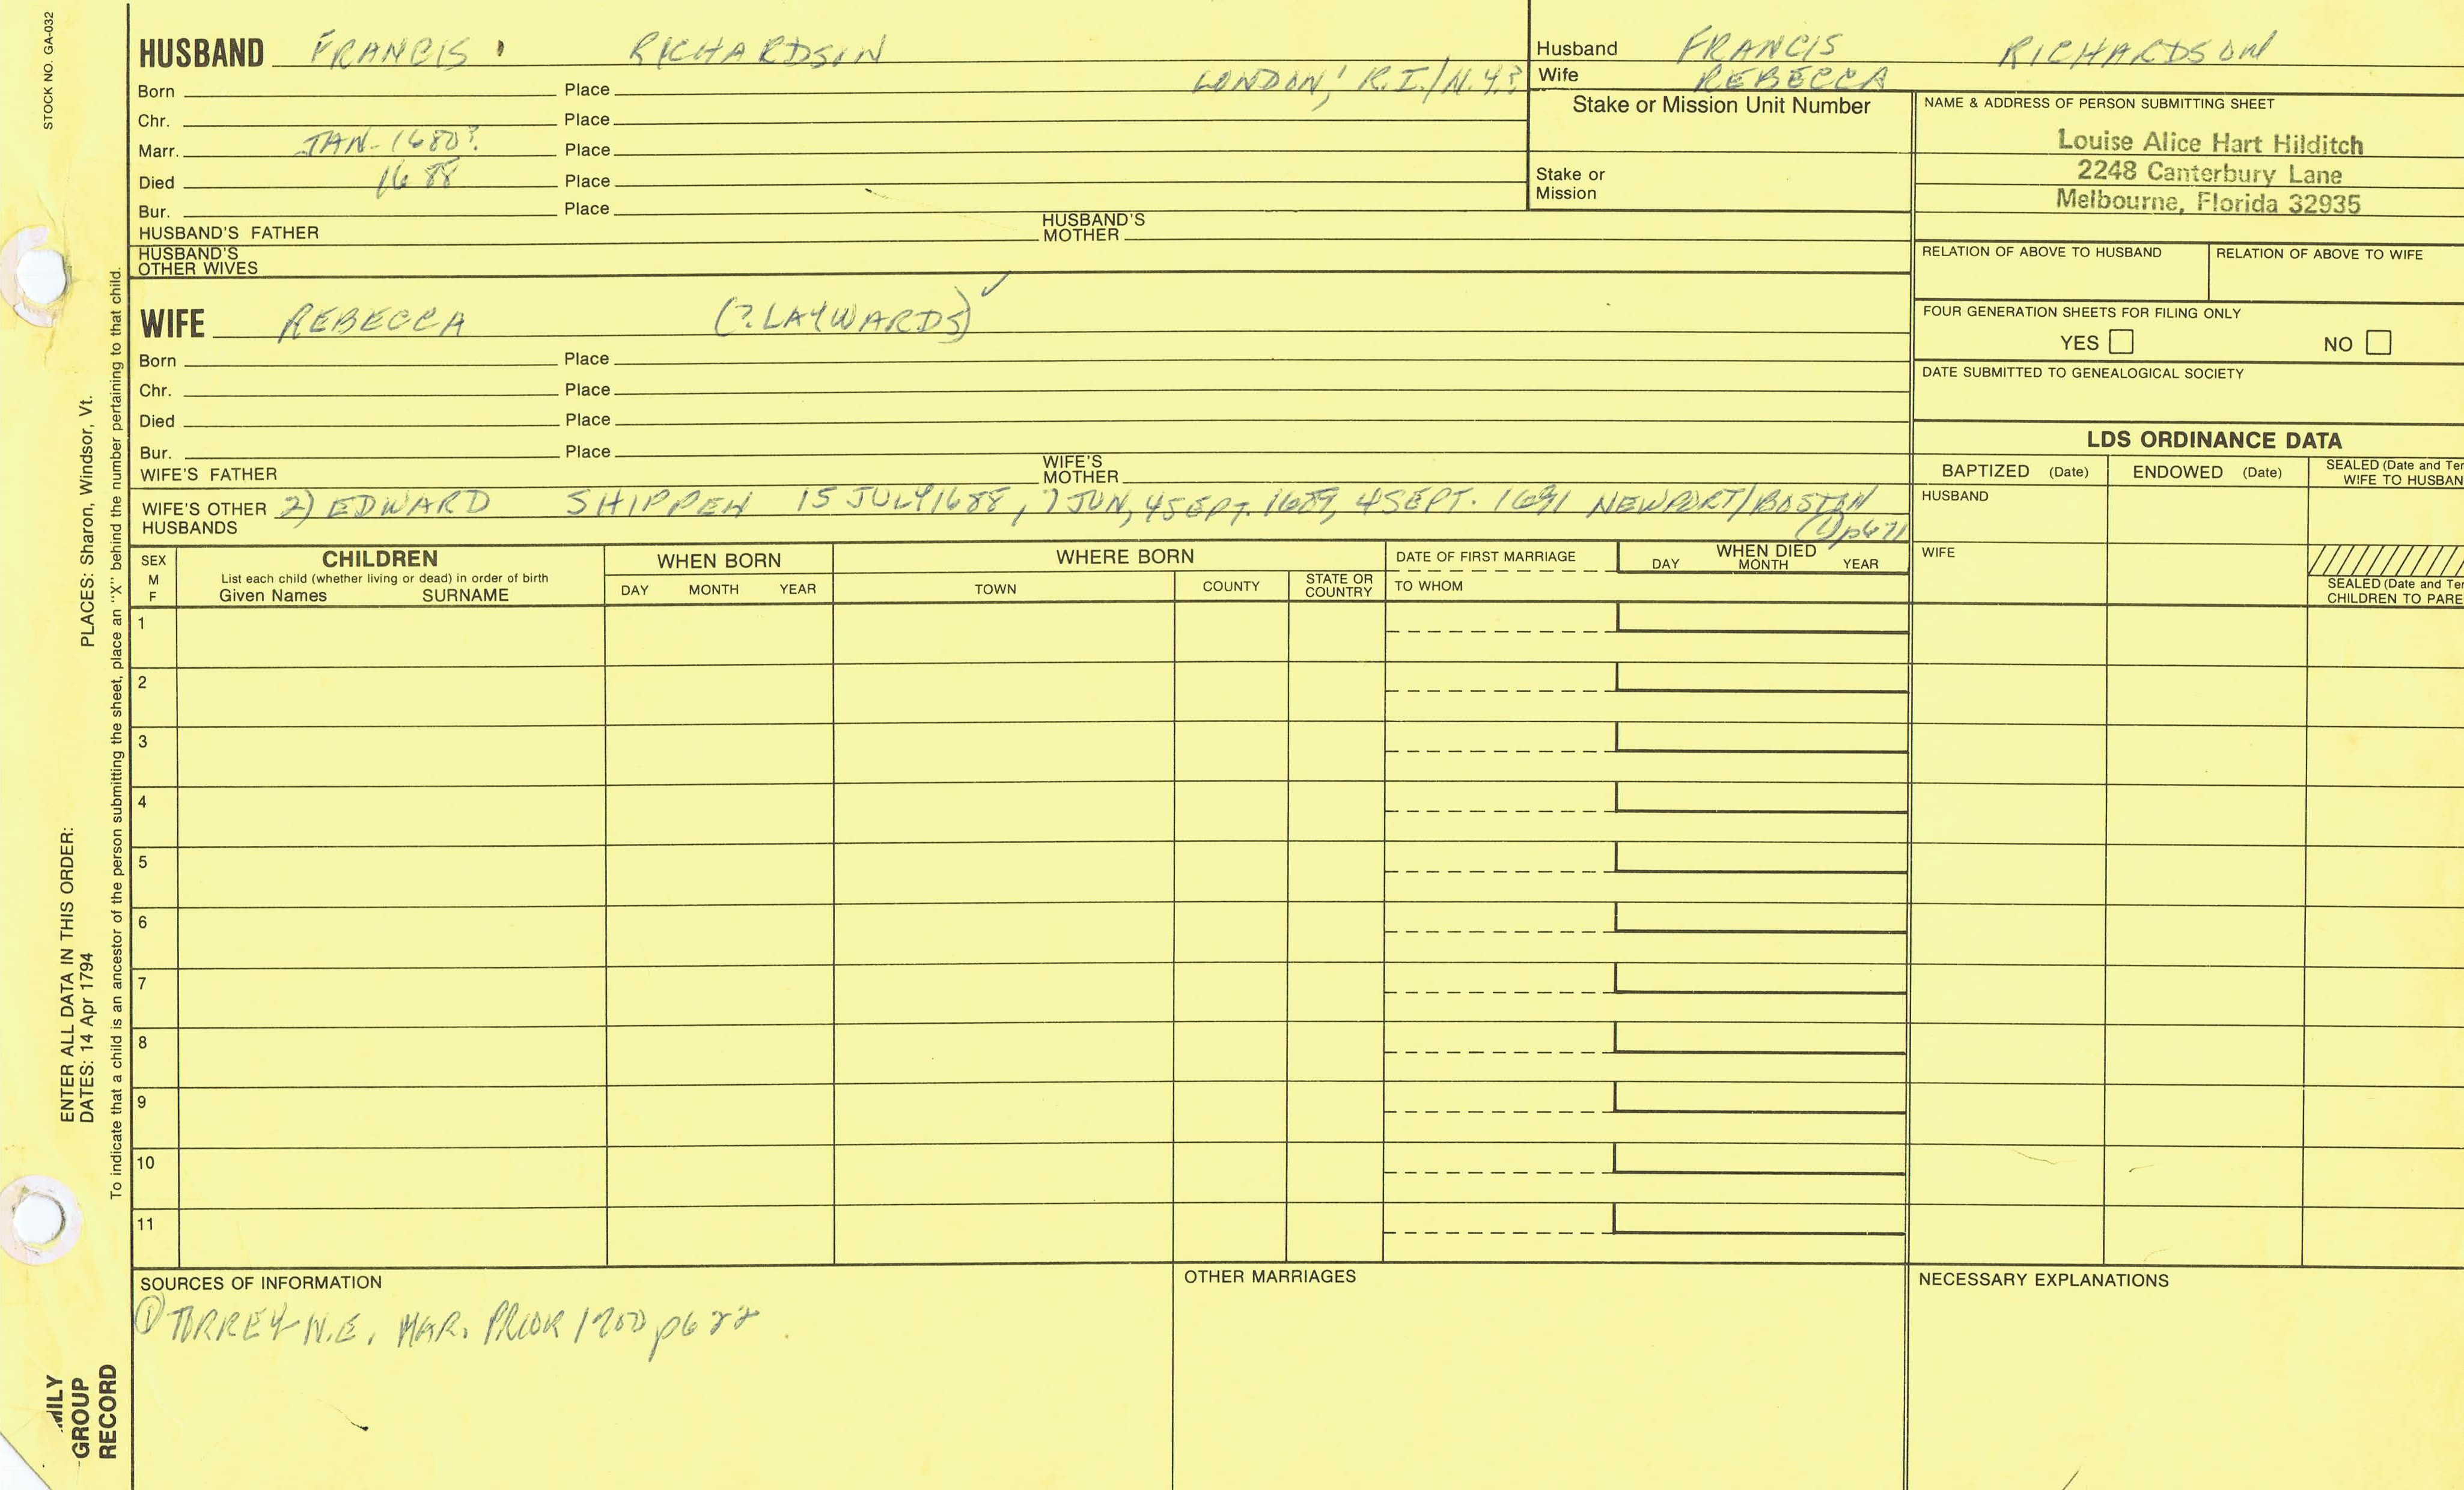 STOCK NO. GA-032
HUSBAND FRANCIS RICHARDSON
LONDON, R.I./N.Y.?
Born Place
Chr. Place
Marr. JAN-1680? Place
Died 1688 Place
Bur. Place
HUSBAND'S FATHER HUSBAND'S MOTHER
HUSBAND'S
OTHER WIVES
Husband FRANCIS RICHARDSON
Wife REBECCA
Stake or Mission Unit Number
Stake or
Mission
NAME & ADDRESS OF PERSON SUBMITTING SHEET
Louise Alice Hart Hilditch
2248 Canterbury Lane
Melbourne, Florida 32935
RELATION OF ABOVE TO HUSBAND RELATION OF ABOVE TO WIFE
FOUR GENERATION SHEETS FOR FILING ONLY
YES NO
DATE SUBMITTED TO GENEALOGICAL SOCIETY
WIFE REBECCA (?LAYWARDS)✓
Born Place
Chr. Place
Died Place
Bur. Place
WIFE'S FATHER WIFE'S MOTHER
WIFE'S OTHER HUSBANDS 2) EDWARD SHIPPEN 15 JULY 1688, 7 JUN, 4 SEPT. 1689, 4 SEPT. 1691 NEWPORT/BOSTON
(1) p671
LDS ORDINANCE DATA
BAPTIZED (Date) ENDOWED (Date) SEALED (Date and Te
WIFE TO HUSBAN
HUSBAND
WIFE
SEALED (Date and Te
CHILDREN TO PARE
SEX
M
F
CHILDREN
List each child (whether living or dead) in order of birth
Given Names SURNAME
WHEN BORN
DAY MONTH YEAR
WHERE BORN
TOWN COUNTY STATE OR COUNTRY
DATE OF FIRST MARRIAGE
TO WHOM
WHEN DIED
DAY MONTH YEAR
1
2
3
4
5
6
7
8
9
10
11
SOURCES OF INFORMATION
① TORREY N.E. MAR. PRIOR 1700 p622
OTHER MARRIAGES
NECESSARY EXPLANATIONS
ENTER ALL DATA IN THIS ORDER:
DATES: 14 Apr 1794 PLACES: Sharon, Windsor, Vt.
To indicate that a child is an ancestor of the person submitting the sheet, place an "X" behind the number pertaining to that child.
MILY
GROUP
RECORD